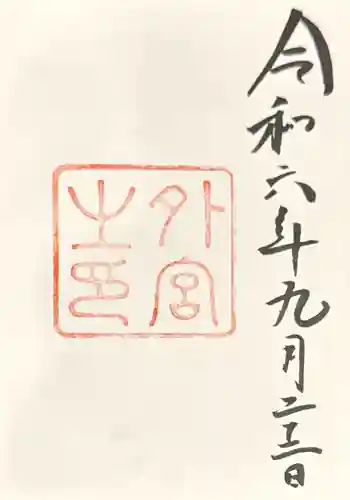 令和六年九月二十三日
外宮
之印